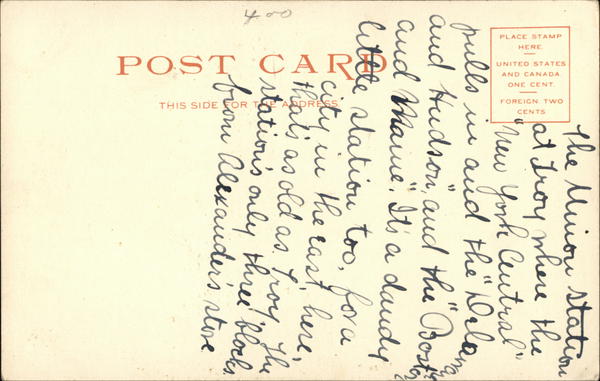 400
POST CARD
THIS SIDE FOR THE ADDRESS
PLACE STAMP
HERE.
UNITED STATES
AND CANADA
ONE CENT.
FOREIGN TWO
CENTS
The Union station
at Troy where the
"New York Central"
pulls in and the "Delaw
and Hudson", and the "Boston
and Maine". It's a dandy
little station too, for a
city in the east here
that's as old as Troy. The
station's only three blocks
from Alexander's store